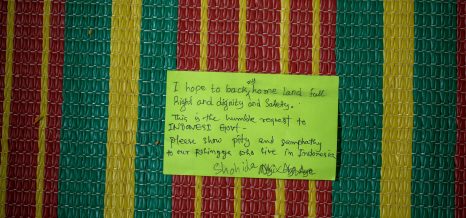 I hope to back my home land full
Right and dignity and Safety.
This is the humble request to
INDONESI Govt-
please show pity and sympathy
to our Rohingya who live in Indonesia
Shahida